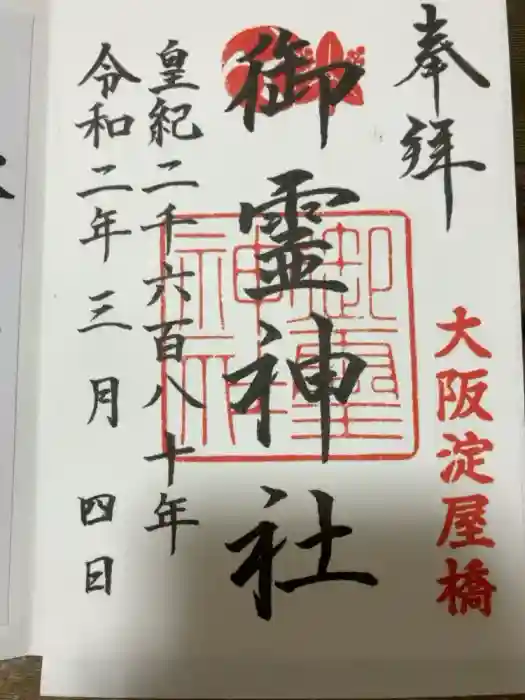 奉拝
大阪淀屋橋
御霊神社
御霊神社
皇紀二千六百八十年
令和二年三月四日